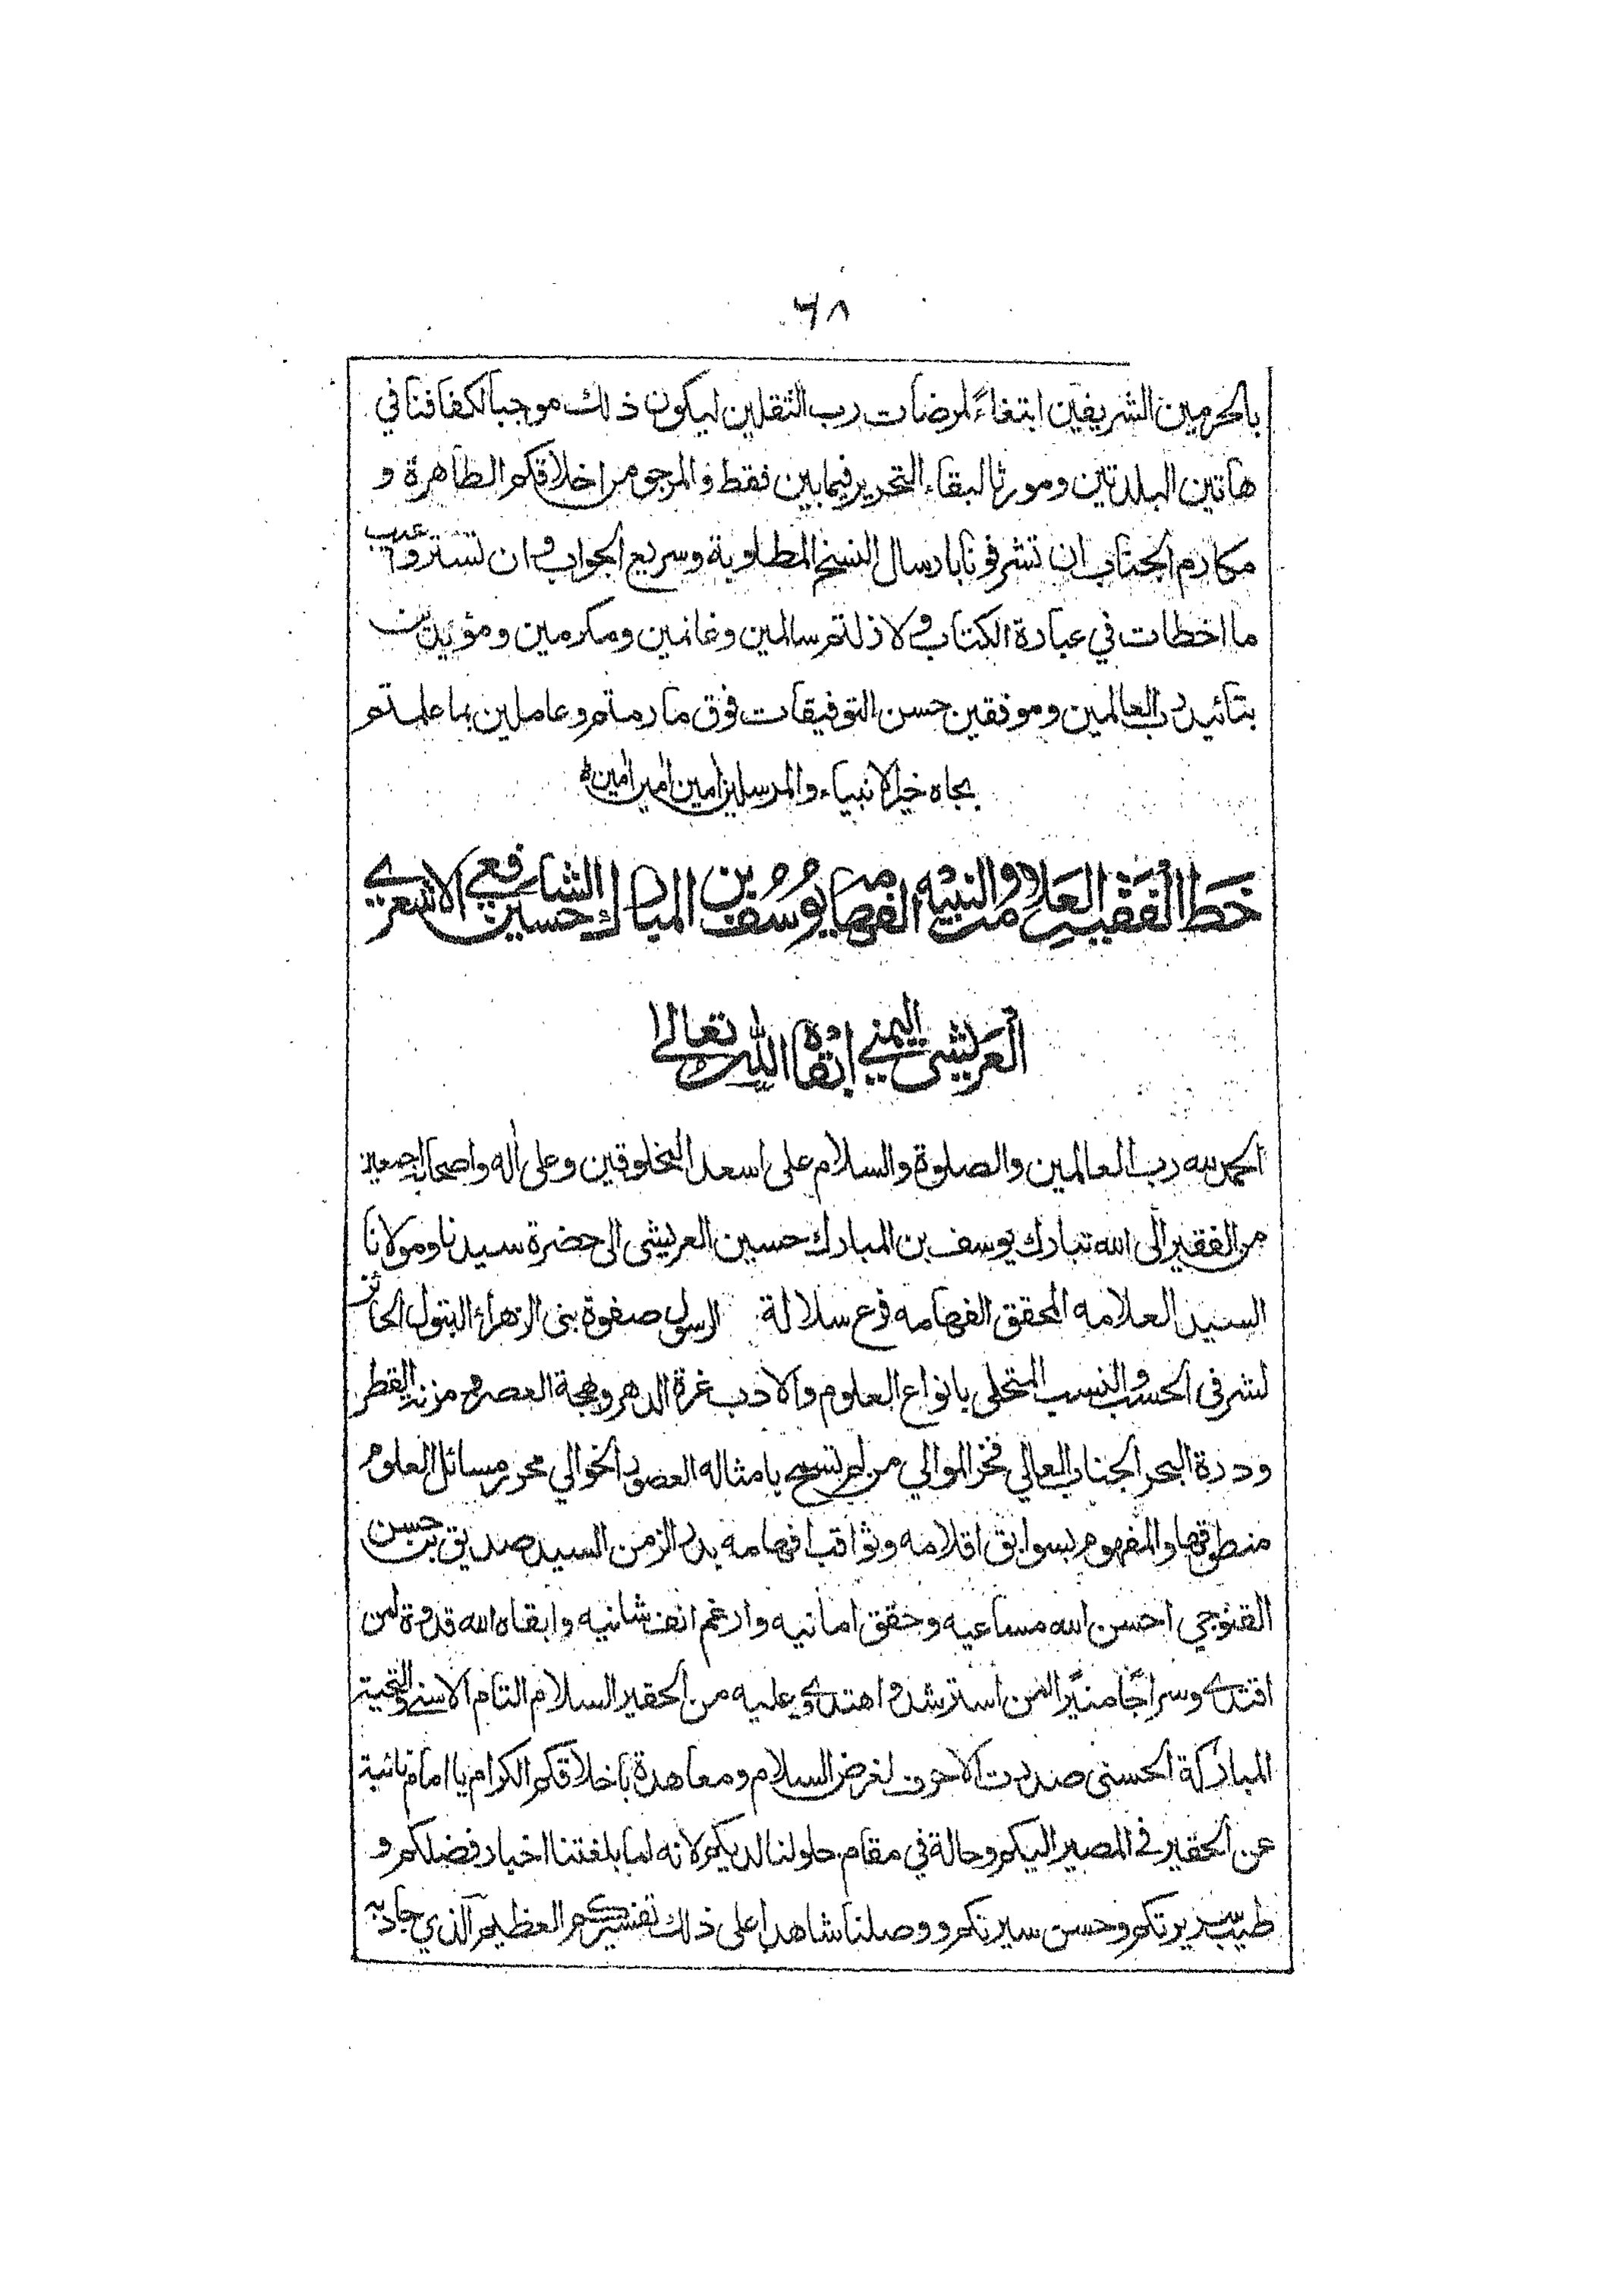 ٦٨
بالحرمين الشريفين ابتغاءً لمرضات رب الثقلين ليكون ذلك موجبا لكفافنا في
هاتين البلدتين ومورثا لبقاء التحرير فيمابين فقط والمرجو من اخلاقكم الطاهرة و
مكارم الجناب ان تشرفونا بارسال النسخ المطلوبة وسريع الجواب وان تستروا عيب
ما اخطات في عبارة الكتاب ولا زلتم سالمين وغانمين ومكرمين ومؤيدين
بتائيد رب العالمين وموفقين حسن التوفيقات فوق ما رمتم وعاملين بما علمتم
بجاه خير الانبياء والمرسلين امين امين امين
خط الفقيه العلامة والنبيه الفهامة يوسف بن المبارك حسين الشافعي الاشعري
العريشي اليمني ابقاه الله تعالى
الحمد لله رب العالمين والصلوة والسلام على اسعد المخلوقين وعلى اله واصحابه اجمعين
من الفقير الى الله تبارك يوسف بن المبارك حسين العريشى الى حضرة سيدنا ومولانا
السيد العلامه المحقق الفهامه فرع سلالة الرسول صفوة بنى الزهراء البتول الحائز
لشرفى الحسب والنسب المتحلى بانواع العلوم والادب غرة الدهر وبهجة العصر ومزنة القطر
ودرة البحر الجناب العالي فخر الموالي من لم تسمح بامثاله العصور الخوالي محرر مسائل العلوم
منطوقها والمفهوم بسوابق اقلامه وثواقب افهامه بدر الزمن السيد صديق بن حسن
القنوجي احسن الله مساعيه وحقق امانيه وارغم انف شانيه وابقاه الله قدوة لمن
اقتدى وسراجًا منيرًا لمن استرشد واهتدى وعليه من الحقير السلام التام الاسنى والتحية
المباركة الحسنى صدرت الاحرف لغرض السلام ومعاهدة باخلاقكم الكرام يا امام نائبة
عن الحقير في المصير اليكم وحالة في مقام حلولنا لديكم لانه لما بلغتنا اخبار فضلكم و
طيب سريرتكم وحسن سيرتكم ووصلنا شاهدا على ذلك تفسيركم العظيم الذي جاد به